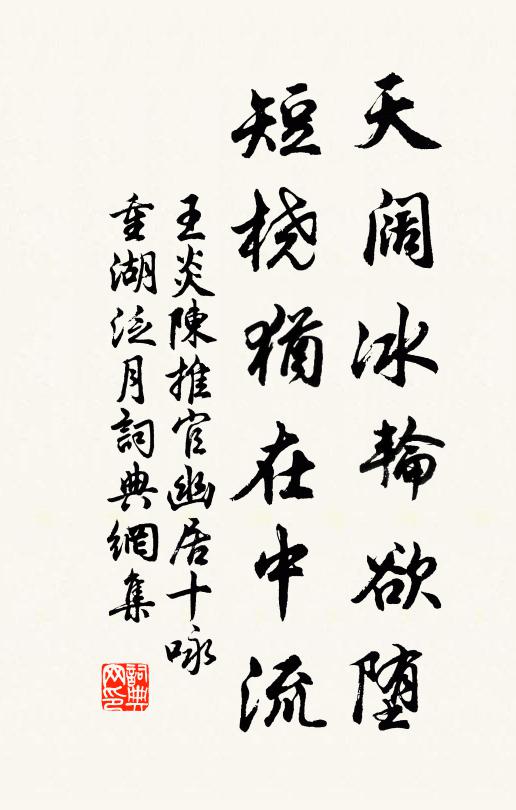 天闊冰輪欲墮
短橈猶在中流
王炎陳推官幽居十咏
重湖泛月詞典網集
詞典網印